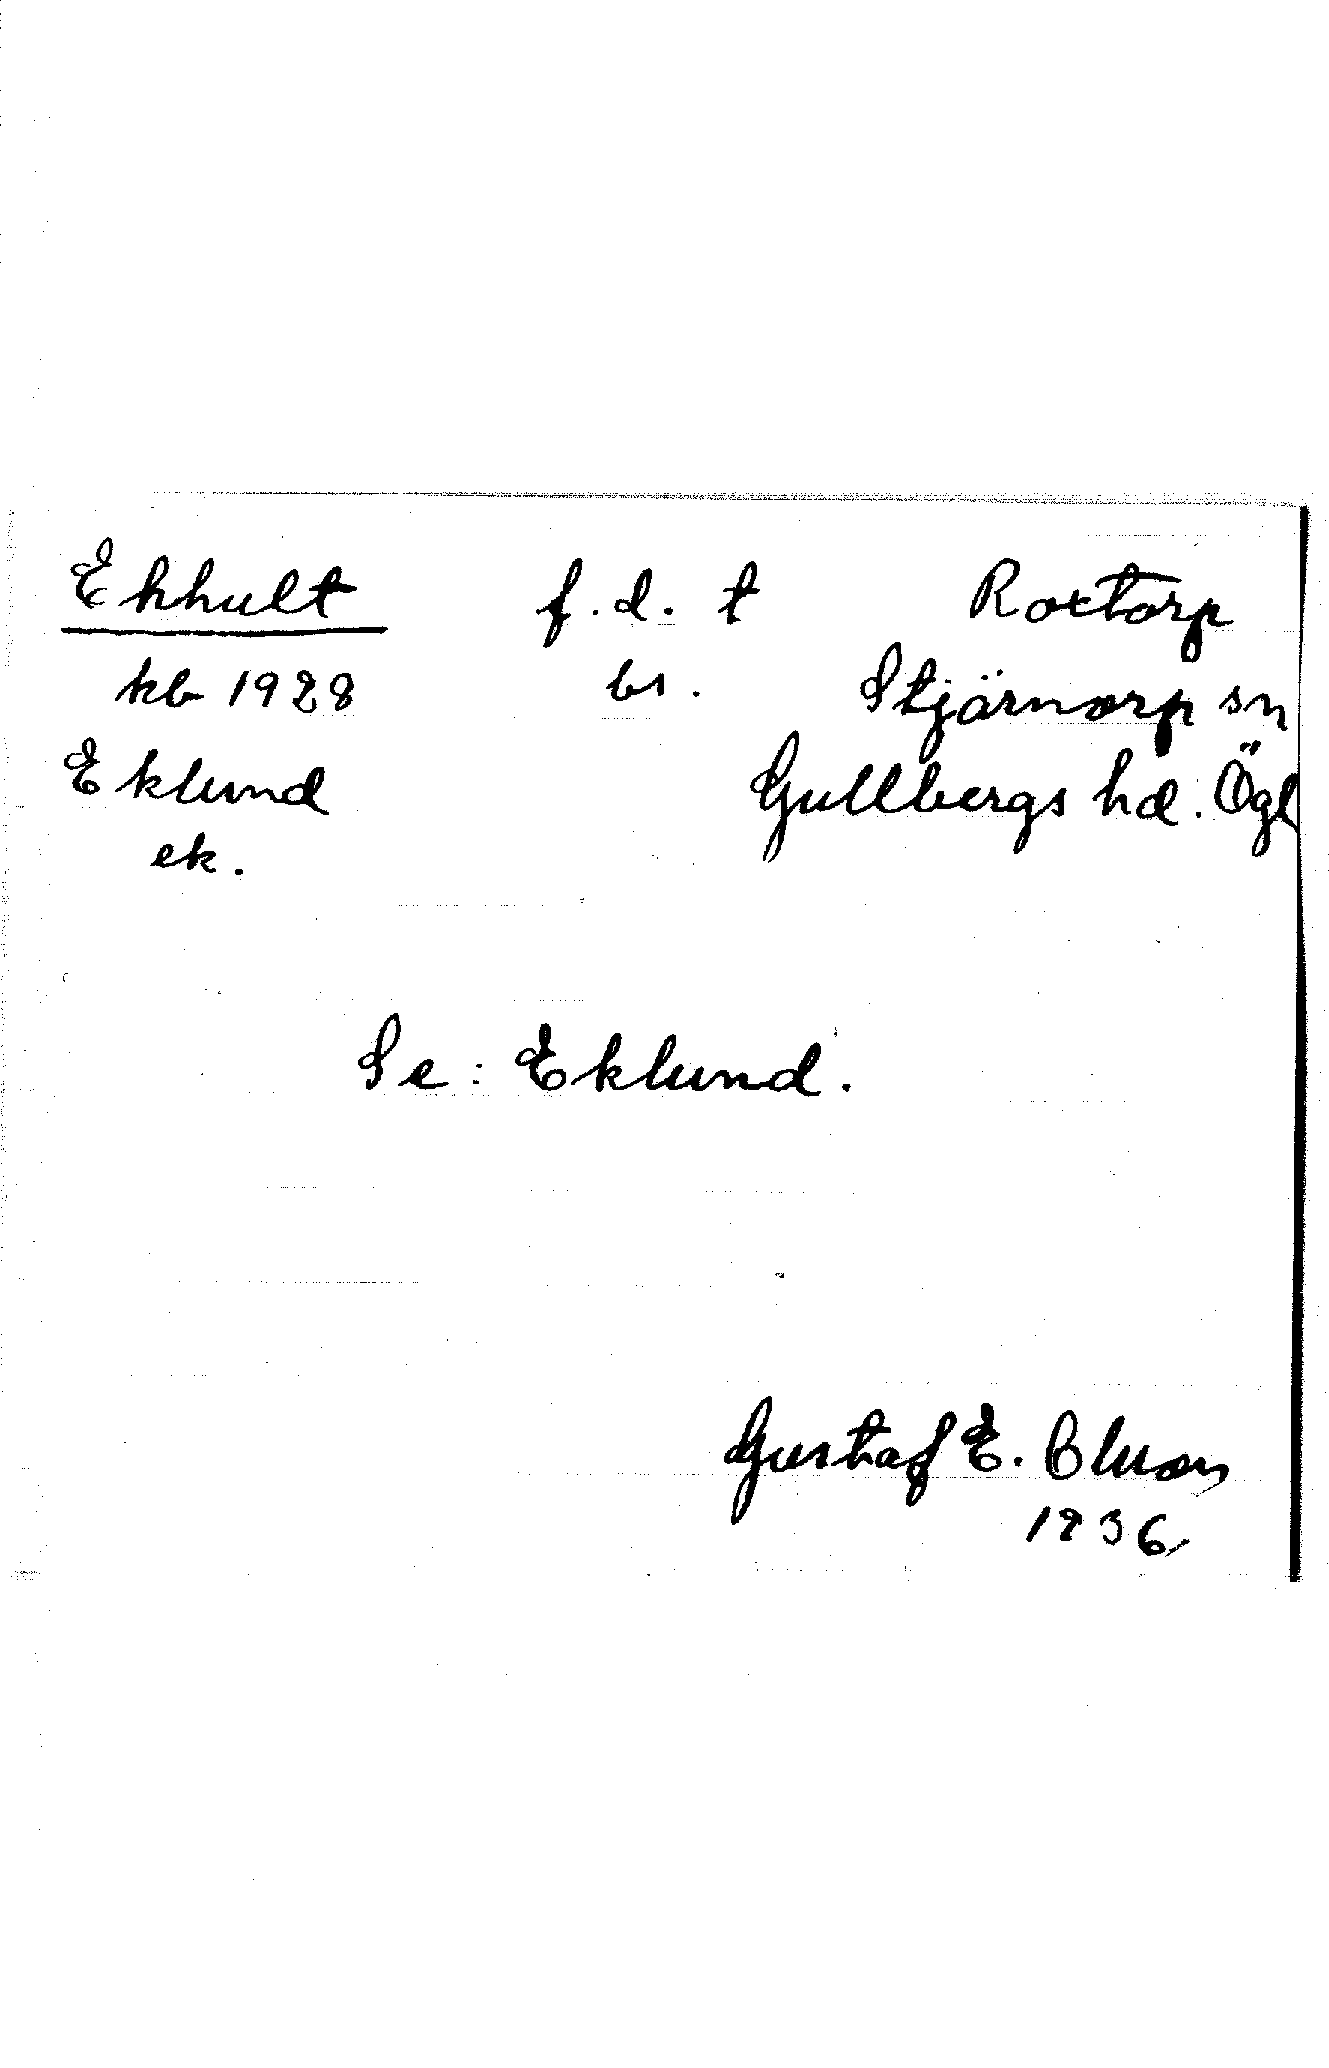 Ekhult f.d. t Roxtorp
kb 1928 bs. Stjärnorp sn
Eklund Gullbergs hd. Ögl
ek.
Se: Eklund.
Gustaf E. Olsson
1936